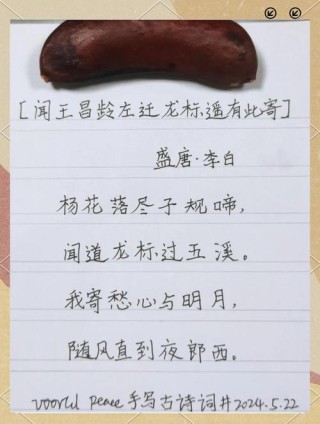 [闻王昌龄左迁龙标遥有此寄]
盛唐·李白
杨花落尽子规啼，
闻道龙标过五溪。
我寄愁心与明月，
随风直到夜郎西。
world peace手写古诗词#2024.5.22